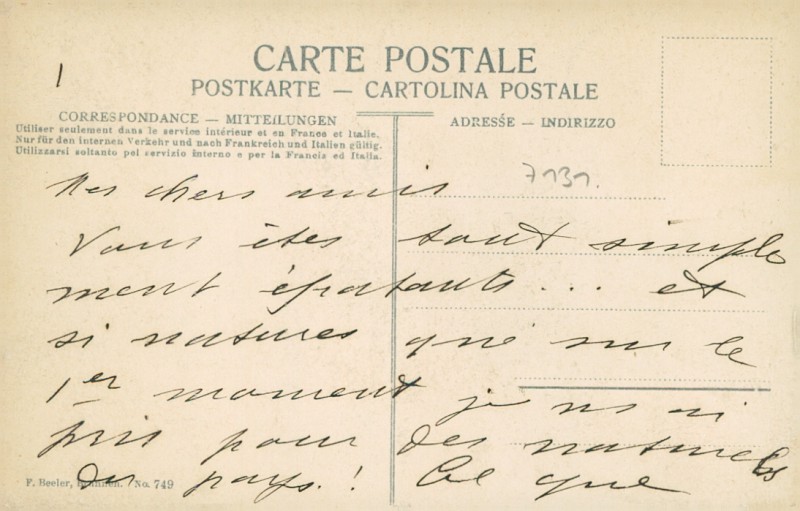 1
CARTE POSTALE
POSTKARTE — CARTOLINA POSTALE
CORRESPONDANCE — MITTEILUNGEN
Utiliser seulement dans le service intérieur et en France et Italie.
Nur für den internen Verkehr und nach Frankreich und Italien gültig.
Utilizzarsi soltanto pel servizio interno e per la Francia ed Italia.
ADRESSE — INDIRIZZO
7131.
Mes chers amis
Vous êtes tout simple
ment épatants... et
si natures que sur le
1er moment je vs ai
pris pour des naturels
du pays.! Ce que
F. Beeler, No. 749